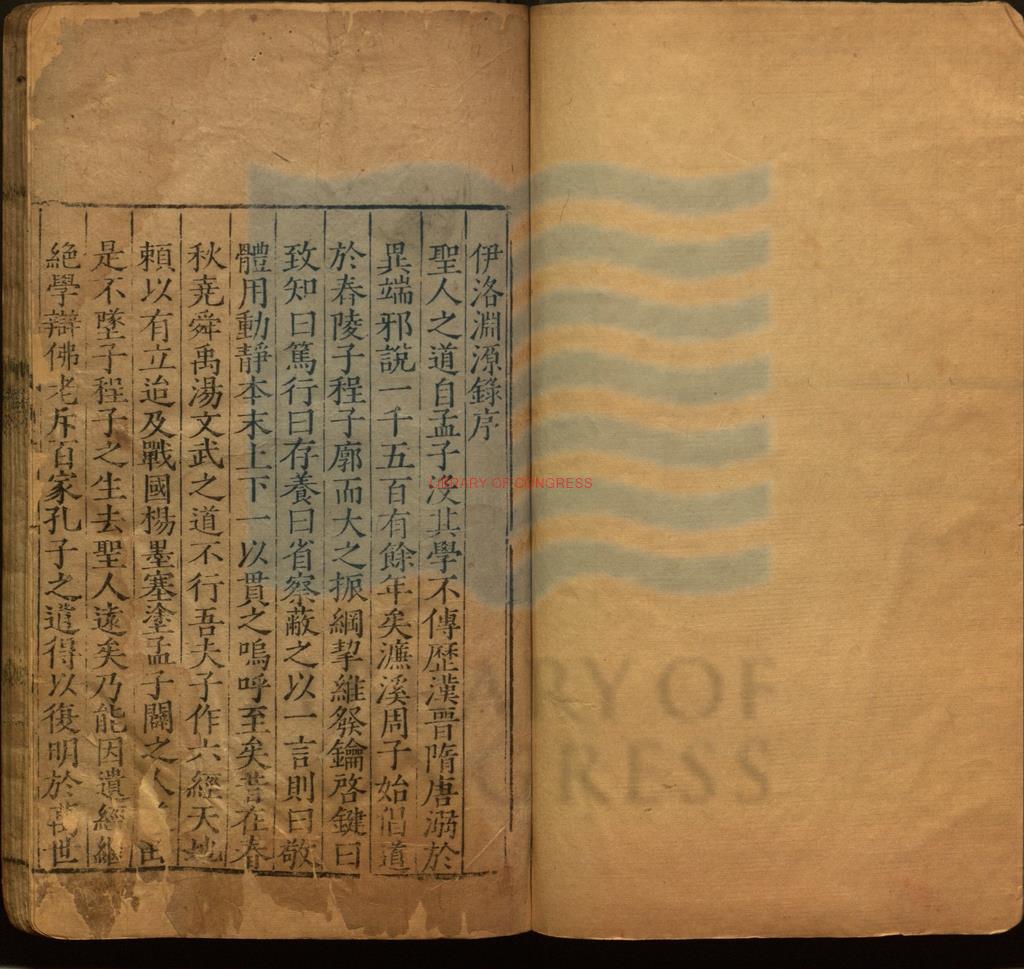 伊洛淵源錄序
聖人之道自孟子沒其學不傳歷漢晉隋唐溺於
異端邪說一千五百有餘年矣濂溪周子始倡道
於舂陵子程子廓而大之振綱挈維發鑰啓鍵曰
致知曰篤行曰存養曰省察蔽之以一言則曰敬
體用動靜本末上下一以貫之嗚呼至矣昔在春
秋堯舜禹湯文武之道不行吾夫子作六經天地
賴以有立迨及戰國楊墨塞塗孟子闢之人
是不墜子程子之生去聖人遠矣乃能因遺經繼
絶學辯佛老斥百家孔子之道得以復明於萬世
LIBRARY OF CONGRESS
ARY OF
GRESS